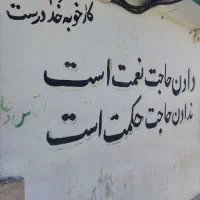 کار خوبه خدا درست
دادن حاجت نعمت است
ندادن حاجت حکمت است